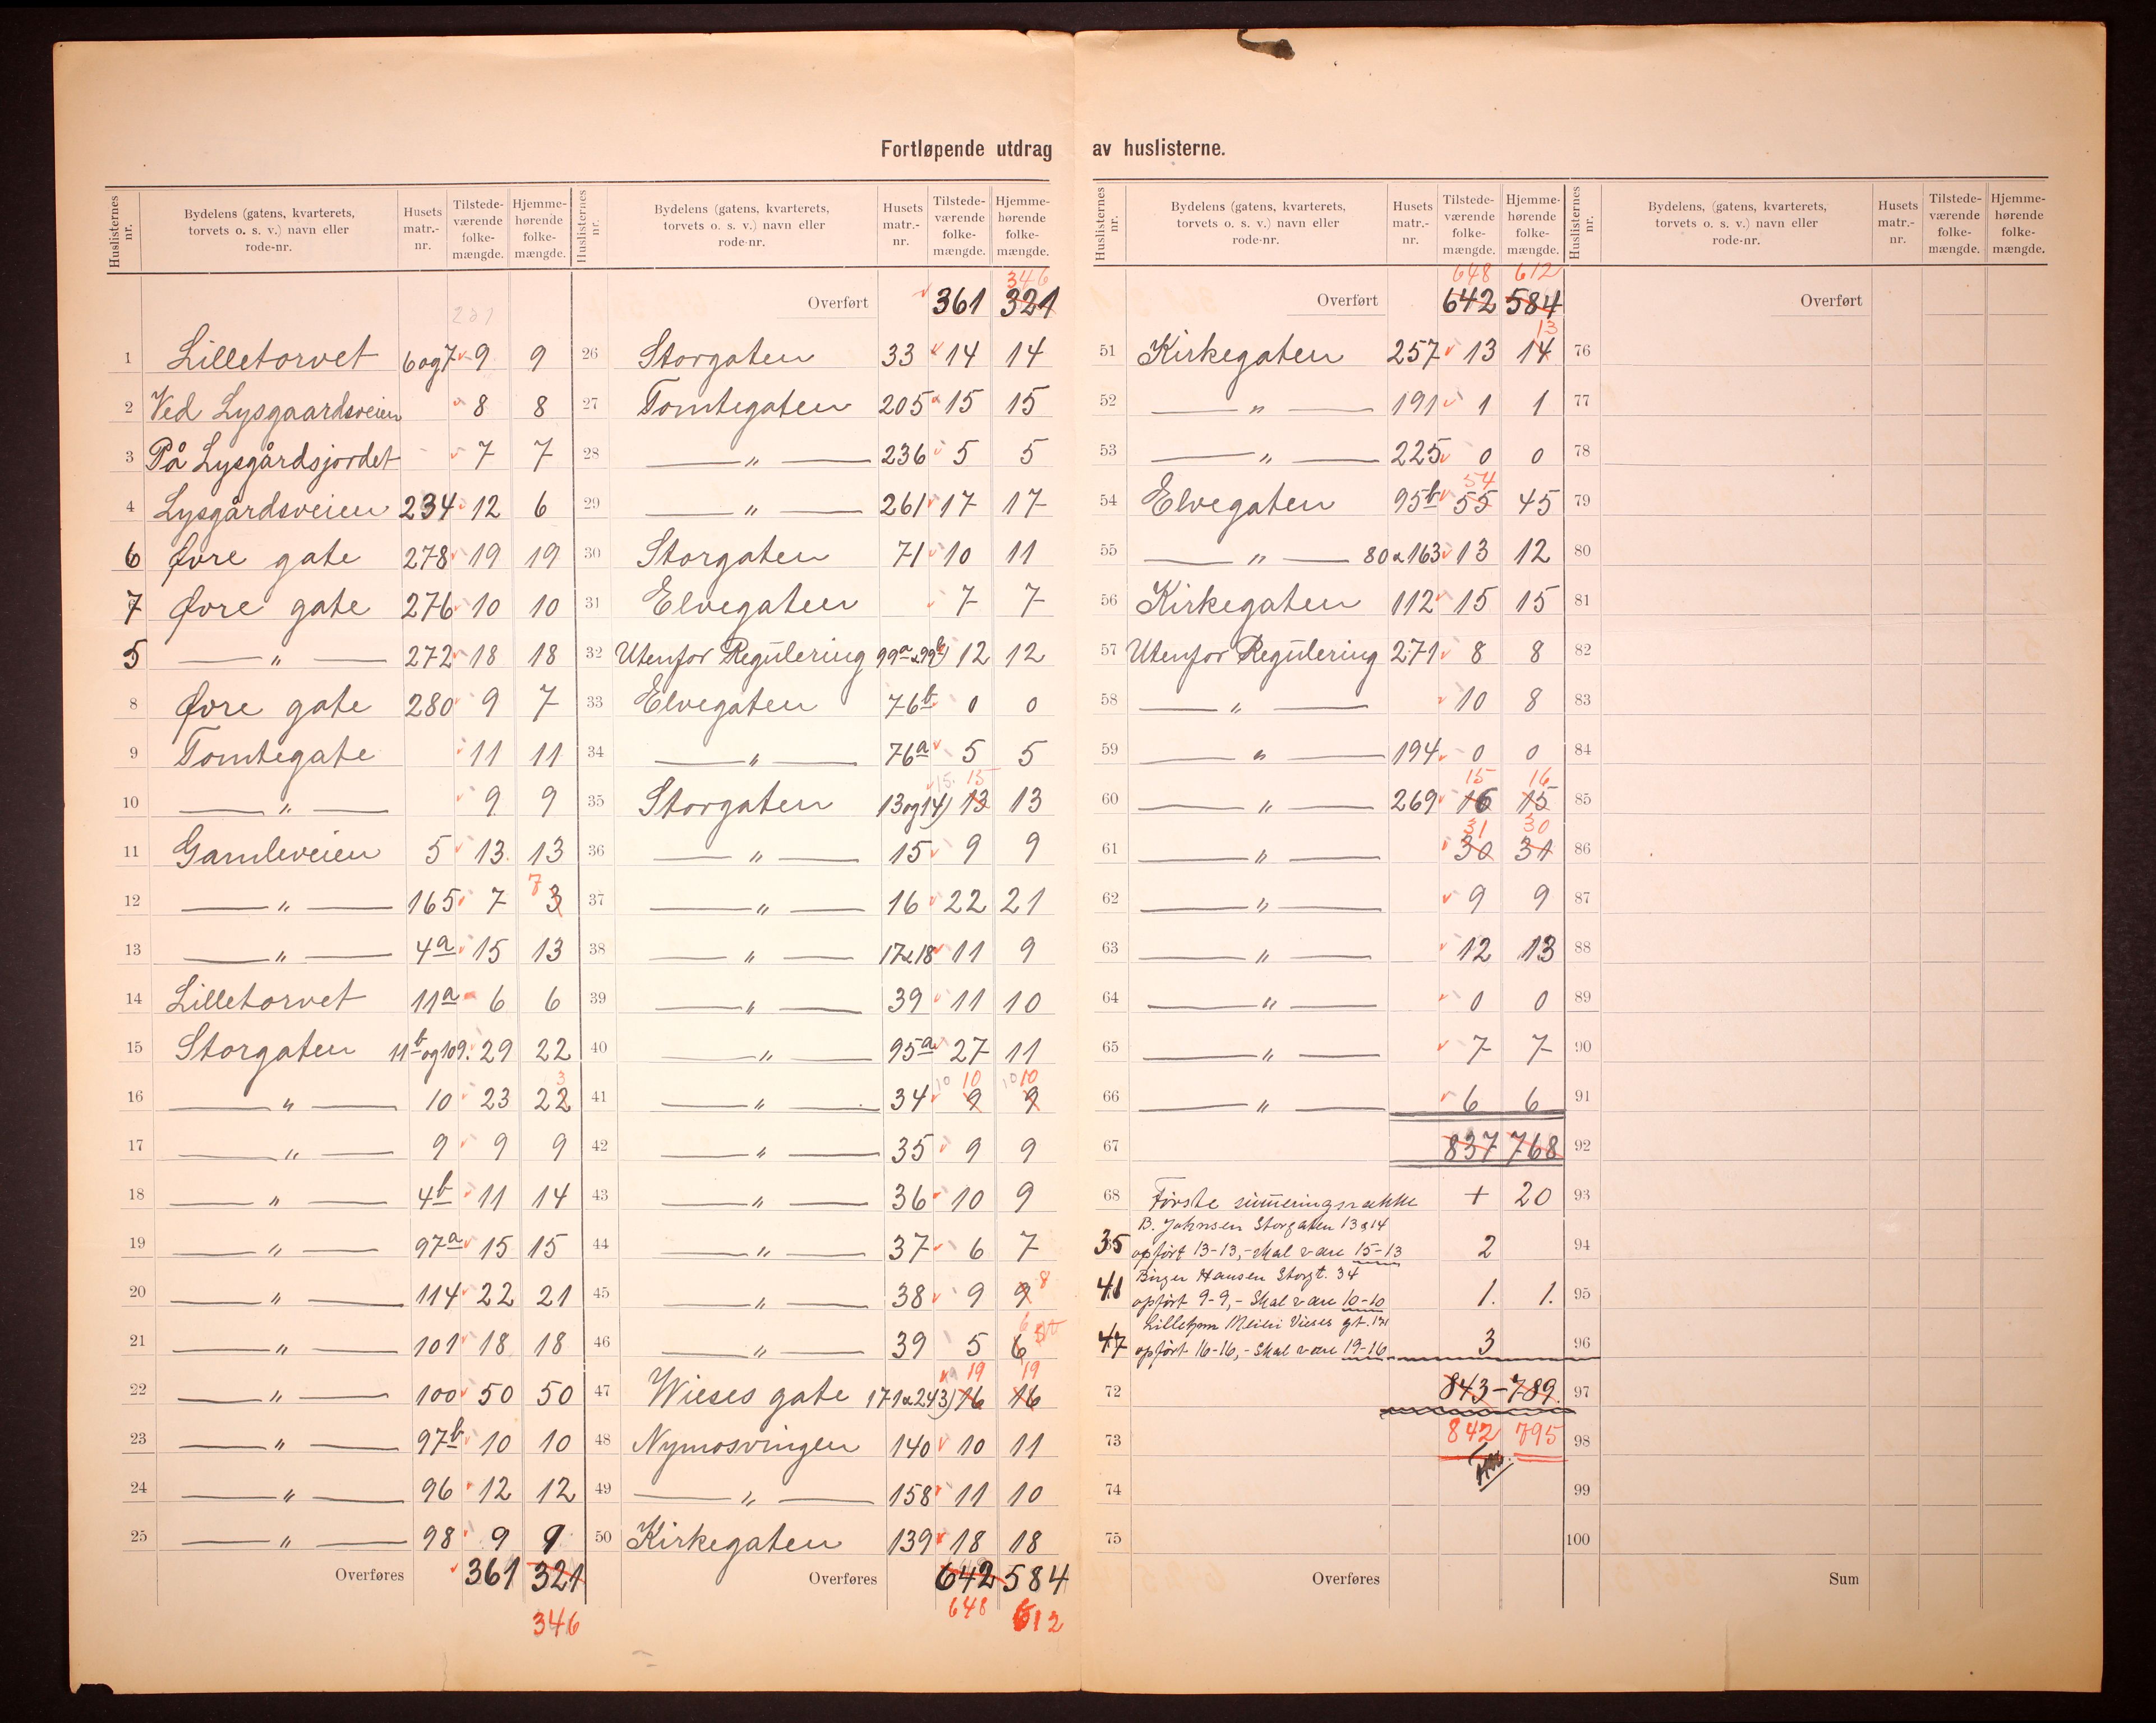 Fortløpende utdrag av huslisterne.
Huslisternes nr. | Bydelens (gatens, kvarterets, torvets o. s. v.) navn eller rode-nr. | Husets matr.-nr. | Tilstede-værende folke-mængde. | Hjemme-hørende folke-mængde.
231
1 Lilletorvet 6og7 9 9
2 Ved Lysgaardsveien 8 8
3 På Lysgårdsjordet - 7 7
4 Lysgårdsveien 234 12 6
6 Øvre gate 278 19 19
7 Øvre gate 276 10 10
5 — " — 272 18 18
8 Øvre gate 280 9 7
9 Tomtegate 11 11
10 — " — 9 9
11 Gamleveien 5 13 13
12 — " — 165 7 3 7
13 — " — 4a 15 13
14 Lilletorvet 11a 6 6
15 Storgaten 11b og 109. 29 22
16 — " — 10 23 22 3
17 — " — 9 9 9
18 — " — 4b 11 14
19 — " — 97a 15 15
20 — " — 114 22 21
21 — " — 101 18 18
22 — " — 100 50 50
23 — " — 97b 10 10
24 — " — 96 12 12
25 — " — 98 9 9
Overføres 361 321
346
Huslisternes nr. | Bydelens (gatens, kvarterets, torvets o. s. v.) navn eller rode-nr. | Husets matr.-nr. | Tilstede-værende folke-mængde. | Hjemme-hørende folke-mængde.
346
Overført 361 321
26 Storgaten 33 14 14
27 Tomtegaten 205 15 15
28 — " — 236 5 5
29 — " — 261 17 17
30 Storgaten 71 10 11
31 Elvegaten 7 7
32 Utenfor Regulering 99a & 99b) 12 12
33 Elvegaten 76b 0 0
34 — " — 76a 5 5
15. 15
35 Storgaten 13og14) 13 13
36 — " — 15 9 9
37 — " — 16 22 21
38 — " — 17&18 11 9
39 — " — 39 11 10
40 — " — 95a 27 11
10 10 10 10
41 — " — 34 9 9
42 — " — 35 9 9
43 — " — 36 10 9
44 — " — 37 6 7
45 — " — 38 9 9 8
46 — " — 39 5 6
19 19
47 Wieses gate 171&243) 16 16
48 Nymosvingen 140 10 11
49 — " — 158 11 10
50 Kirkegaten 139 18 18
Overføres 642 584
648 612
Huslisternes nr. | Bydelens (gatens, kvarterets, torvets o. s. v.) navn eller rode-nr. | Husets matr.-nr. | Tilstede-værende folke-mængde. | Hjemme-hørende folke-mængde.
648 612
Overført 642 584
13
51 Kirkegaten 257 13 14
52 — " — 191 1 1
53 — " — 225 0 0
54
54 Elvegaten 95b 55 45
55 — " — 80&163 13 12
56 Kirkegaten 112 15 15
57 Utenfor Regulering 271 8 8
58 — " — 10 8
59 — " — 194 0 0
15 16
60 — " — 269 16 15
31 30
61 — " — 30 31
62 — " — 9 9
63 — " — 12 13
64 — " — 0 0
65 — " — 7 7
66 — " — 6 6
67 837 768
68 Første summeringsrække + 20
B. Johnsen Storgaten 13&14
35 opført 13-13,- skal være 15-13 2
Birger Hansen Storgt. 34
41 opført 9-9,- Skal være 10-10 1. 1.
Lillehm Meieri Vieses gt. 171
47 opført 16-16,- Skal være 19-16 3
72 843-789.
73 842 795
74
75
Overføres
Huslisternes nr. | Bydelens, (gatens, kvarterets, torvets o. s. v.) navn eller rode-nr. | Husets matr.-nr. | Tilstede-værende folke-mængde. | Hjemme-hørende folke-mængde.
Overført
76
77
78
79
80
81
82
83
84
85
86
87
88
89
90
91
92
93
94
95
96
97
98
99
100
Sum